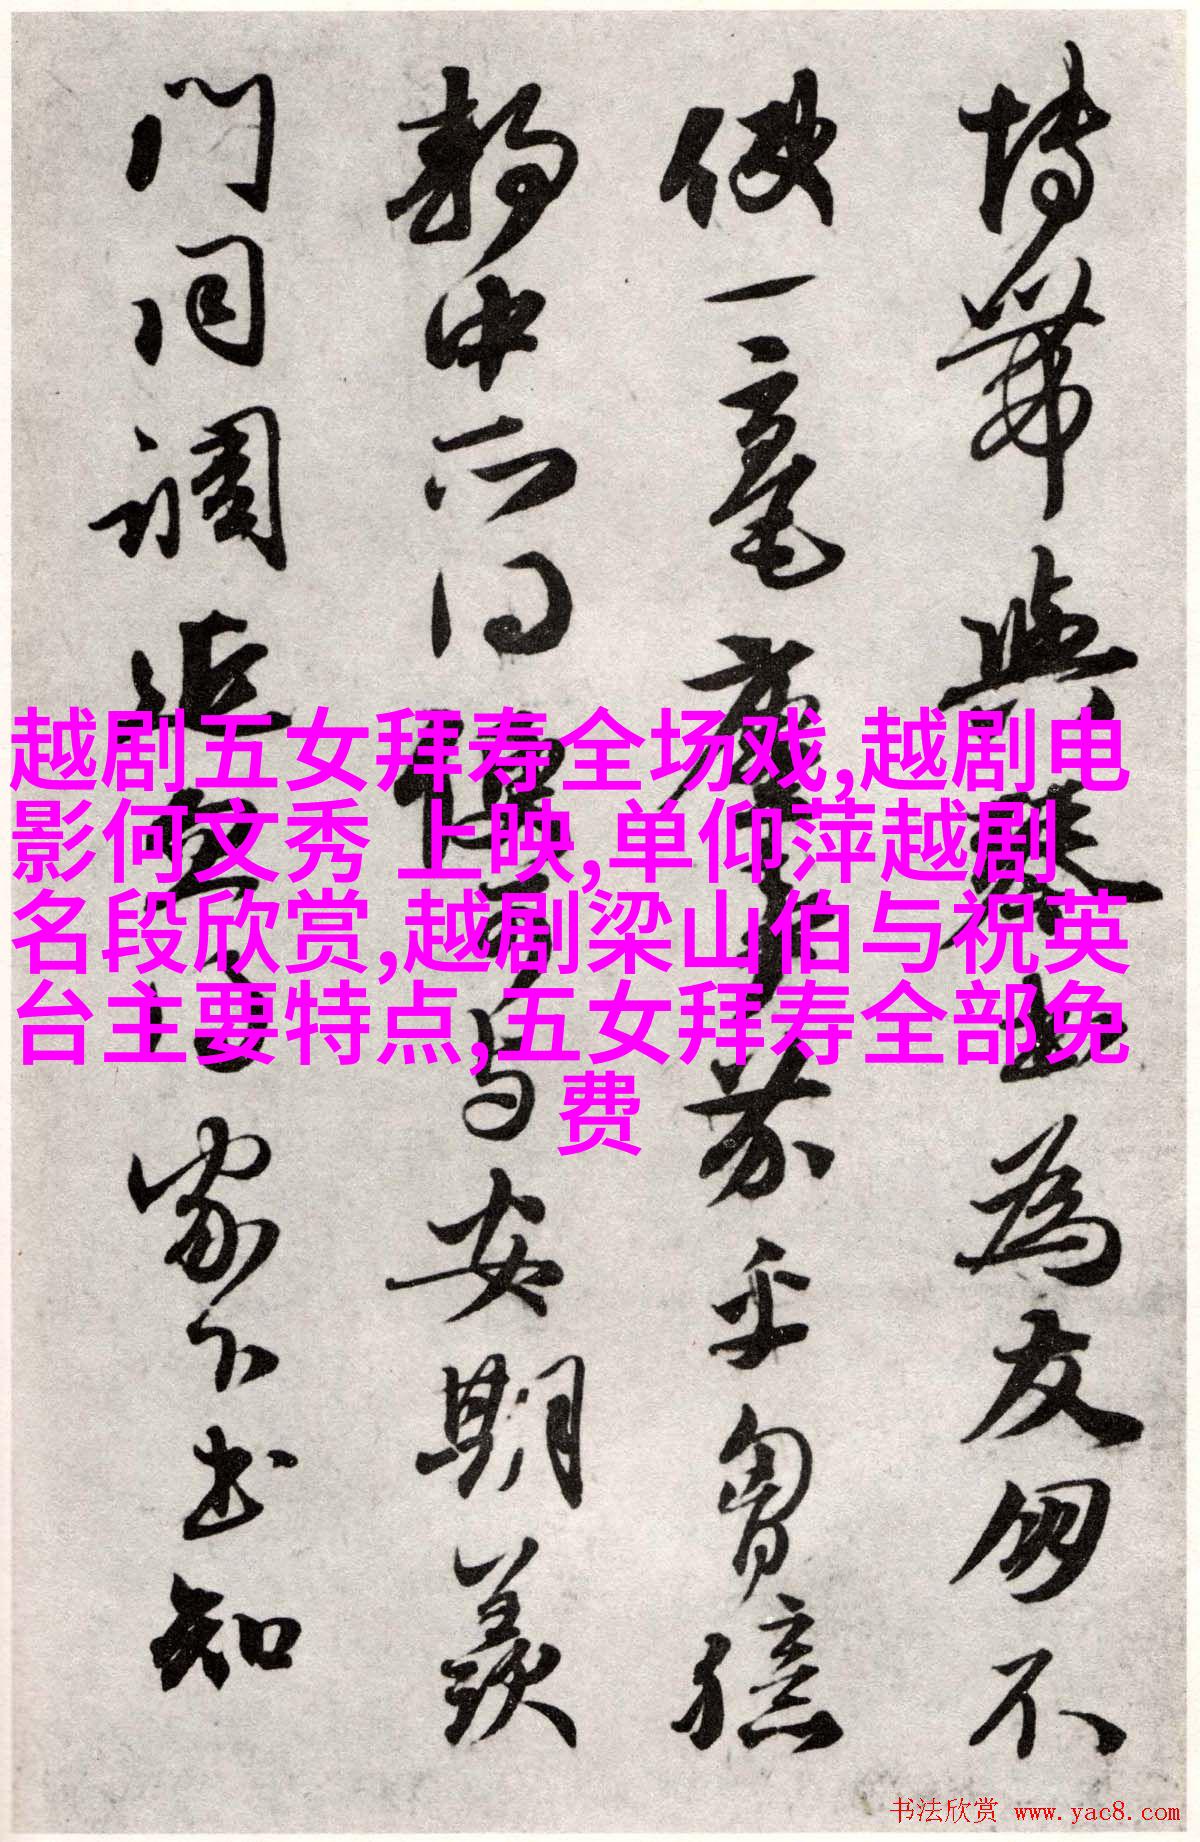 與琴為友不
使一毫塵事芥乎胷臆
靜中所得与安期羨
門同調家下知
越剧五女拜寿全场戏,越剧电
影何文秀 上映,单仰萍越剧
名段欣赏,越剧梁山伯与祝英
台主要特点,五女拜寿全部免
费
书法欣赏 www.yac8.com